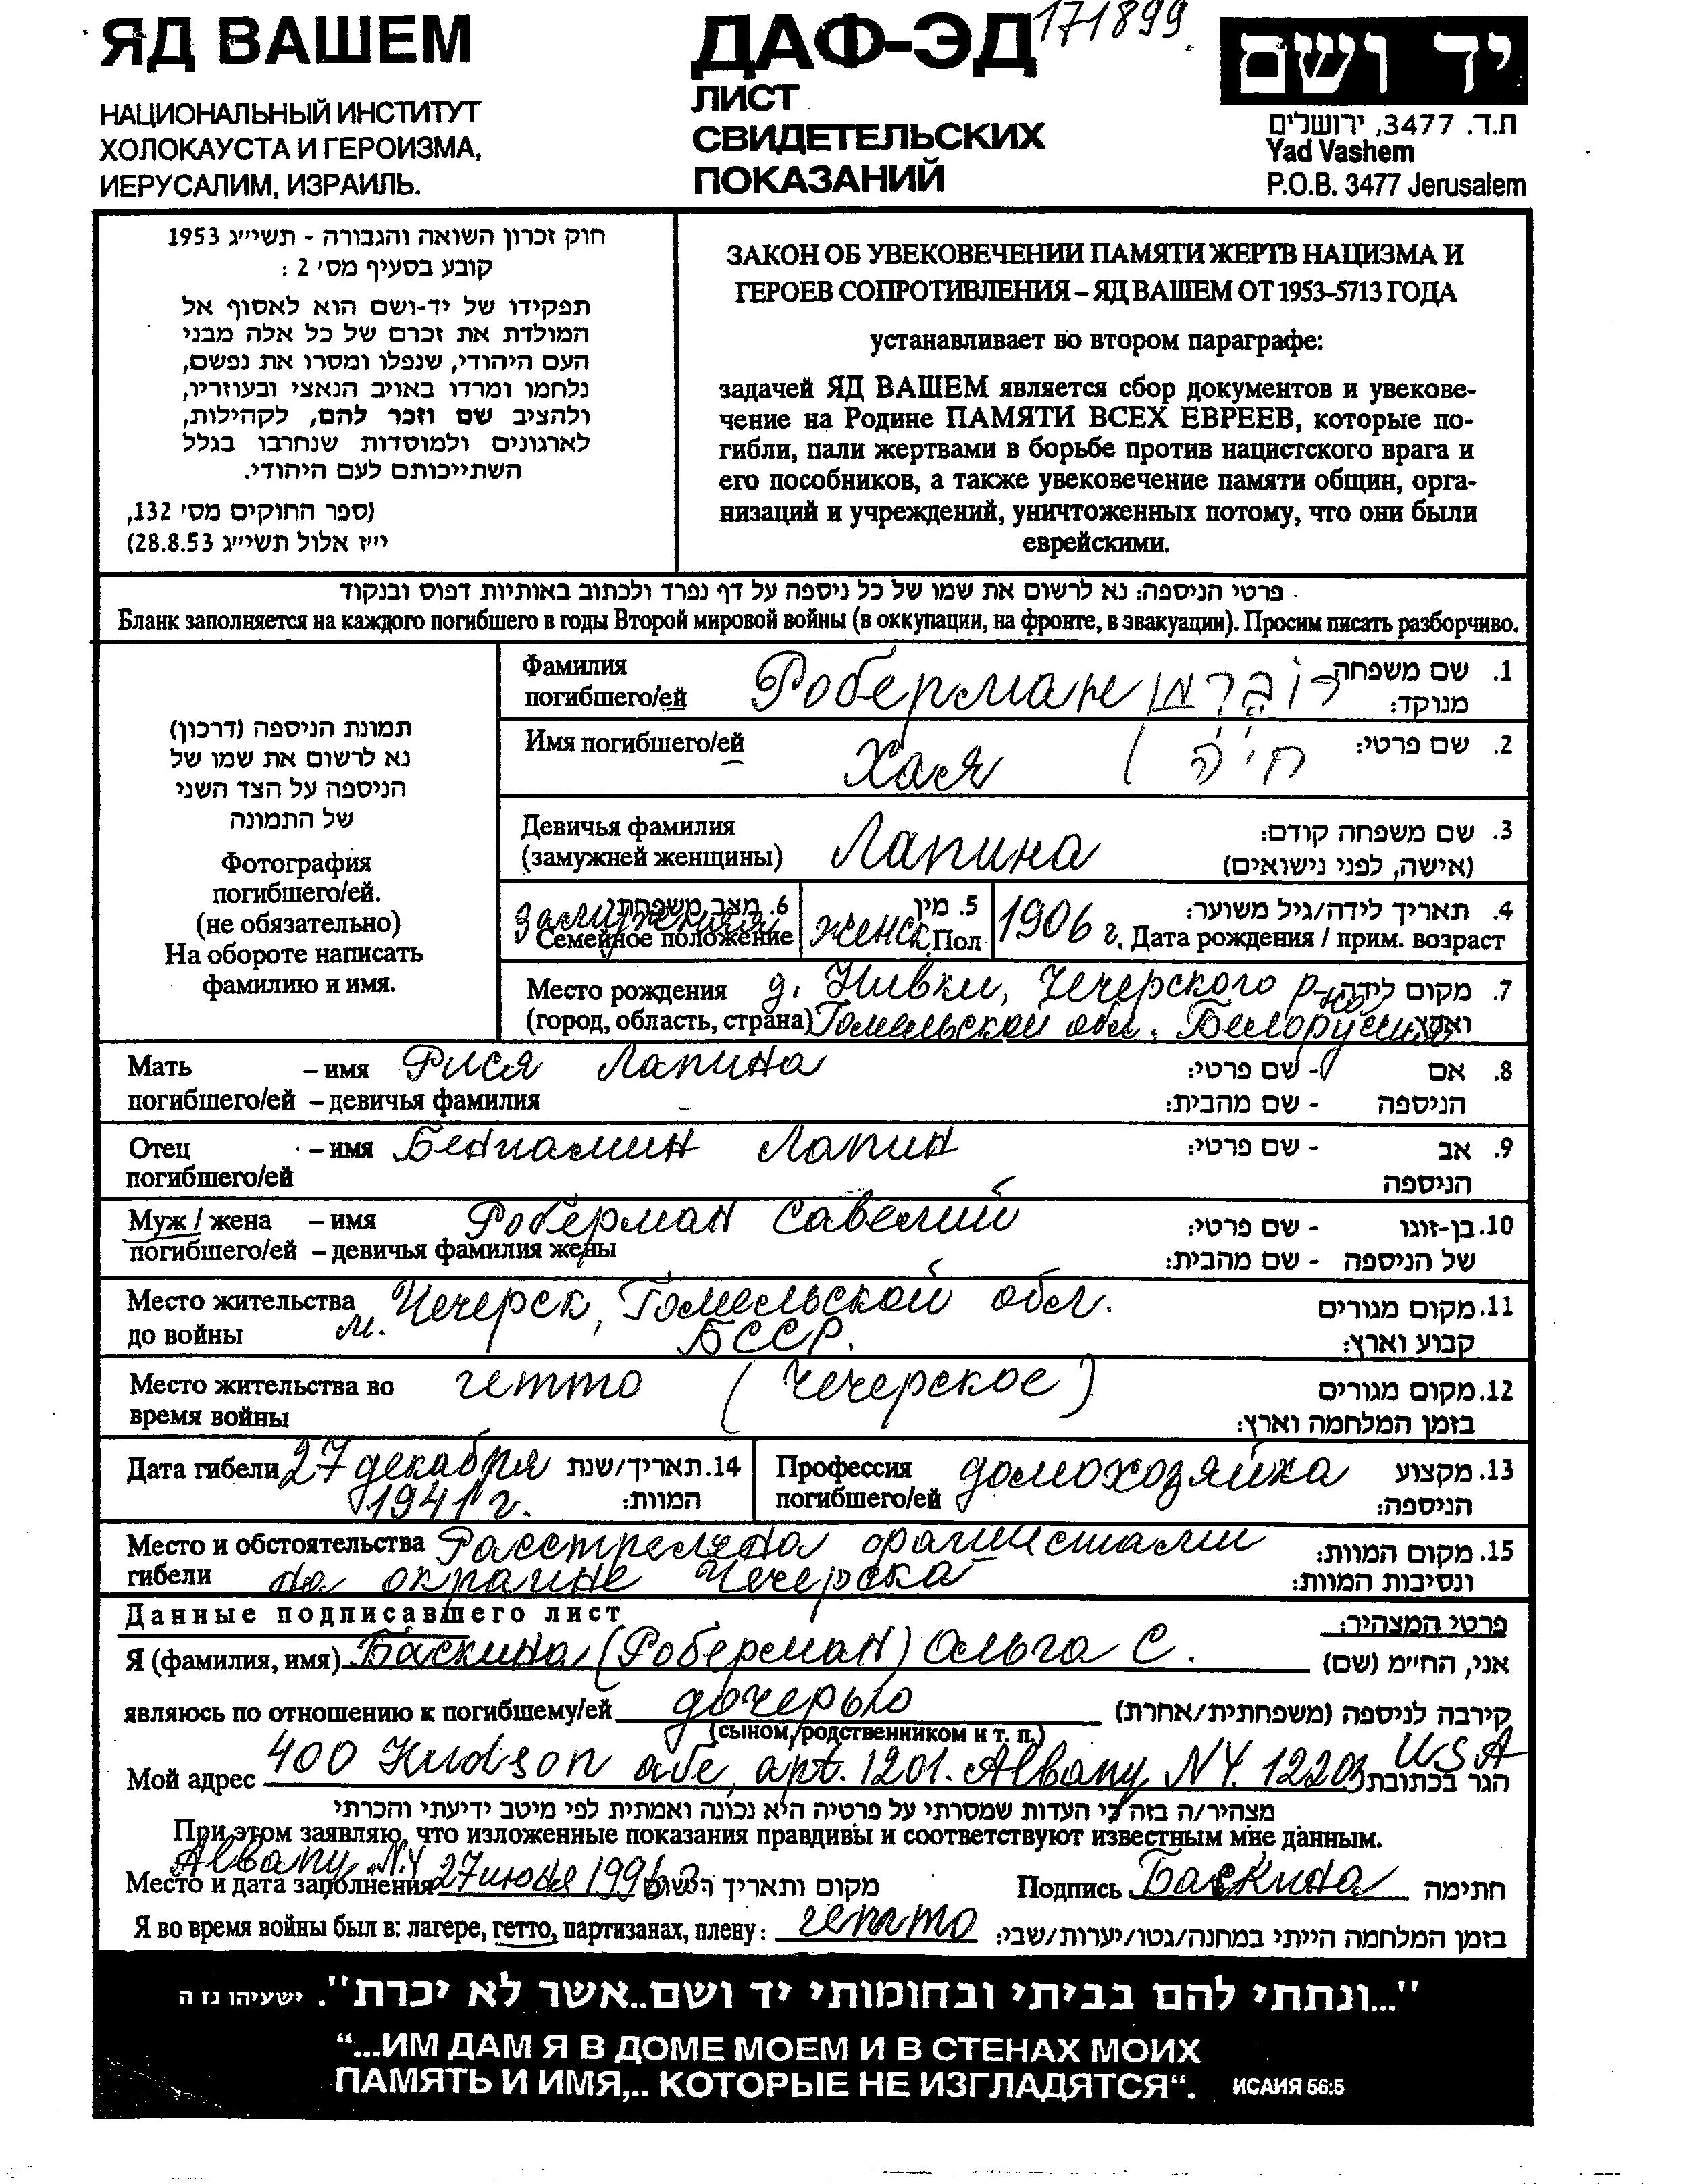 ЯД ВАШЕМ
НАЦИОНАЛЬНЫЙ ИНСТИТУТ
ХОЛОКАУСТА И ГЕРОИЗМА,
ИЕРУСАЛИМ, ИЗРАИЛЬ.
ДАФ-ЭД 171899.
ЛИСТ
СВИДЕТЕЛЬСКИХ
ПОКАЗАНИЙ
יד ושם
ת.ד. 3477, ירושלים
Yad Vashem
P.O.B. 3477 Jerusalem
חוק זכרון השואה והגבורה - תשי״ג 1953
קובע בסעיף מס׳ 2 :
תפקידו של יד-ושם הוא לאסוף אל
המולדת את זכרם של כל אלה מבני
העם היהודי, שנפלו ומסרו את נפשם,
נלחמו ומרדו באויב הנאצי ובעוזריו,
ולהציב שם וזכר להם, לקהילות,
לארגונים ולמוסדות שנחרבו בגלל
השתייכותם לעם היהודי.
(ספר החוקים מס׳ 132,
י״ז אלול תשי״ג 28.8.53)
ЗАКОН ОБ УВЕКОВЕЧЕНИИ ПАМЯТИ ЖЕРТВ НАЦИЗМА И
ГЕРОЕВ СОПРОТИВЛЕНИЯ – ЯД ВАШЕМ ОТ 1953–5713 ГОДА
устанавливает во втором параграфе:
задачей ЯД ВАШЕМ является сбор документов и увекове-
чение на Родине ПАМЯТИ ВСЕХ ЕВРЕЕВ, которые по-
гибли, пали жертвами в борьбе против нацистского врага и
его пособников, а также увековечение памяти общин, орга-
низаций и учреждений, уничтоженных потому, что они были
еврейскими.
פרטי הניספה: נא לרשום את שמו של כל ניספה על דף נפרד ולכתוב באותיות דפוס ובנקוד
Бланк заполняется на каждого погибшего в годы Второй мировой войны (в оккупации, на фронте, в эвакуации). Просим писать разборчиво.
תמונת הניספה (דרכון)
נא לרשום את שמו של
הניספה על הצד השני
של התמונה
Фотография
погибшего/ей.
(не обязательно)
На обороте написать
фамилию и имя.
Фамилия
погибшего/ей Роберман רוברמן
1. שם משפחה
מנוקד:
Имя погибшего/ей Хая חיה
2. שם פרטי:
Девичья фамилия
(замужней женщины) Лапина
3. שם משפחה קודם:
(אישה, לפני נישואים)
6. מצב משפחתי
замужняя
Семейное положение
5. מין
женск. Пол
4. תאריך לידה/גיל משוער:
1906 г. Дата рождения / прим. возраст
Место рождения д. Нивки, Чечерского р-на
(город, область, страна) Гомельской обл. Белоруссия
7. מקום לידה
וארץ:
Мать – имя Рися Лапина
погибшего/ей – девичья фамилия
8. אם - שם פרטי:
הניספה - שם מהבית:
Отец – имя Бениамин Лапин
погибшего/ей
9. אב - שם פרטי:
הניספה
Муж / жена – имя Роберман Савелий
погибшего/ей – девичья фамилия жены
10. בן-זוגו - שם פרטי:
של הניספה - שם מהבית:
Место жительства
до войны м. Чечерск, Гомельской обл.
БССР.
11. מקום מגורים
קבוע וארץ:
Место жительства во
время войны гетто (Чечерское)
12. מקום מגורים
בזמן המלחמה וארץ:
Дата гибели 27 декабря
1941 г.
14. תאריך/שנת
המוות:
Профессия
погибшего/ей домохозяйка
13. מקצוע
הניספה:
Место и обстоятельства Расстреляна фашистами
гибели на окраине Чечерска
15. מקום המוות:
ונסיבות המוות:
Данные подписавшего лист
פרטי המצהיר:
Я (фамилия, имя) Баскина (Роберман) Ольга С. אני, החי״מ (שם)
являюсь по отношению к погибшему/ей дочерью קירבה לניספה (משפחתית/אחרת)
(сыном, родственником и т. п.)
Мой адрес 400 Hudson ave, apt. 1201. Albany NY. 12203 USA הגר בכתובת
מצהיר/ה בזה כי העדות שמסרתי על פרטיה היא נכונה ואמתית לפי מיטב ידיעתי והכרתי
При этом заявляю, что изложенные показания правдивы и соответствуют известным мне данным.
Albany, N.Y
Место и дата заполнения 27 июня 1996 מקום ותאריך Подпись Баскина חתימה
Я во время войны был в: лагере, гетто, партизанах, плену: гетто בזמן המלחמה הייתי במחנה/גטו/יערות/שבי:
"...ונתתי להם בביתי ובחומותי יד ושם..אשר לא יכרת". ישעיהו נז ה
“...ИМ ДАМ Я В ДОМЕ МОЕМ И В СТЕНАХ МОИХ
ПАМЯТЬ И ИМЯ,.. КОТОРЫЕ НЕ ИЗГЛАДЯТСЯ“. ИСАИЯ 56:5